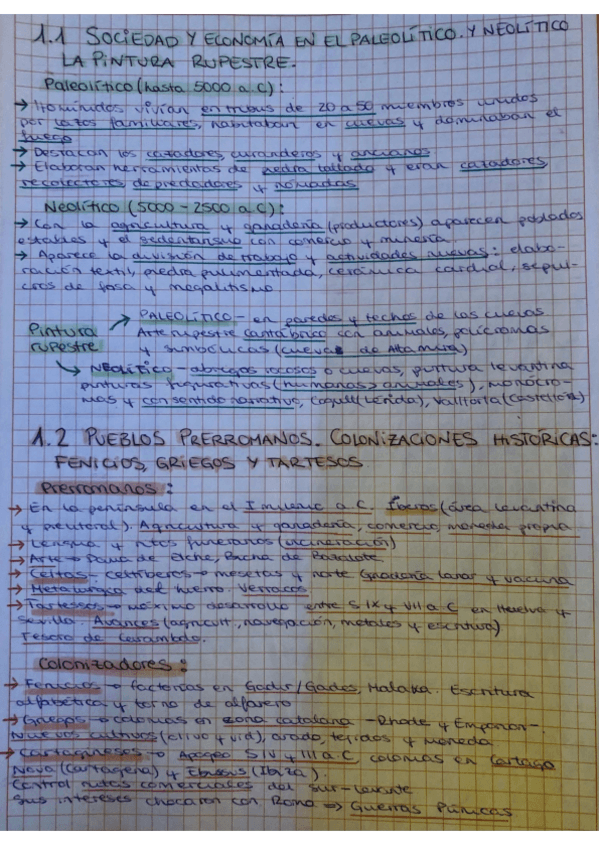 1.1 SOCIEDAD Y ECONOMÍA EN EL PALEOLÍTICO. Y NEOLÍTICO
LA PINTURA RUPESTRE.
Paleolítico (hasta 5000 a.C):
→ Homínidos vivían en tribus de 20 a 50 miembros unidos
por lazos familiares, habitaban en cuevas y dominaban el
fuego
→ Destacan los cazadores, curanderos y ancianos
→ Elaboran herramientas de piedra tallada y eran cazadores
recolectores depredadores y nómadas
Neolítico (5000 - 2500 a.C):
→ Con la agricultura y ganadería (productores) aparecen poblados
estables y el sedentarismo con comercio y minería
→ Aparece la división de trabajo y actividades nuevas: elabo-
ración textil, piedra pulimentada, cerámica cardial, sepul-
cros de fosa y megalitismo
Pintura rupestre
PALEOLÍTICO - en paredes y techos de las cuevas
Arte rupestre cantábrico con animales, polícromas
y simbólicas (cuevas de Altamira)
NEOLÍTICO - abrigos rocosos o cuevas, pintura levantina
pinturas figurativas (humanas > animales), monócro-
mas y con sentido narrativo, Cogull (Lérida), Valltorta (Castellón)
1.2 PUEBLOS PRERROMANOS. COLONIZACIONES HISTÓRICAS:
FENICIOS, GRIEGOS Y TARTESOS
Prerromanos:
→ En la península en el I milenio a.C. Íberos (área levantina
y meridional). Agricultura y ganadería, comercio, moneda propia
→ Lengua y ritos funerarios (incineración)
→ Arte → Dama de Elche, Bicha de Balazote
→ Celtas: celtíberos → mesetas y norte Ganadería lanar y vacuna
→ Metalurgia del hierro. Verracos
→ Tartessos → máximo desarrollo entre S IX y VII a.C en Huelva y
Sevilla. Avances (agricult., navegación, metales y escritura)
Tesoro de Carambolo.
Colonizadores:
→ Fenicios → factorías en Gadir/Gades, Malaka. Escritura
alfabética y torno de alfarero
→ Griegos → colonias en zona catalana - Rhode y Emporion -
Nuevos cultivos (olivo y vid), arado, tejidos y moneda
→ Cartagineses → Apogeo S IV y III a.C, colonias en Cartago
Nova (Cartagena) y Ebusus (Ibiza).
Control rutas comerciales del sur-levante
Sus intereses chocaron con Roma ⇒ Guerras Púnicas